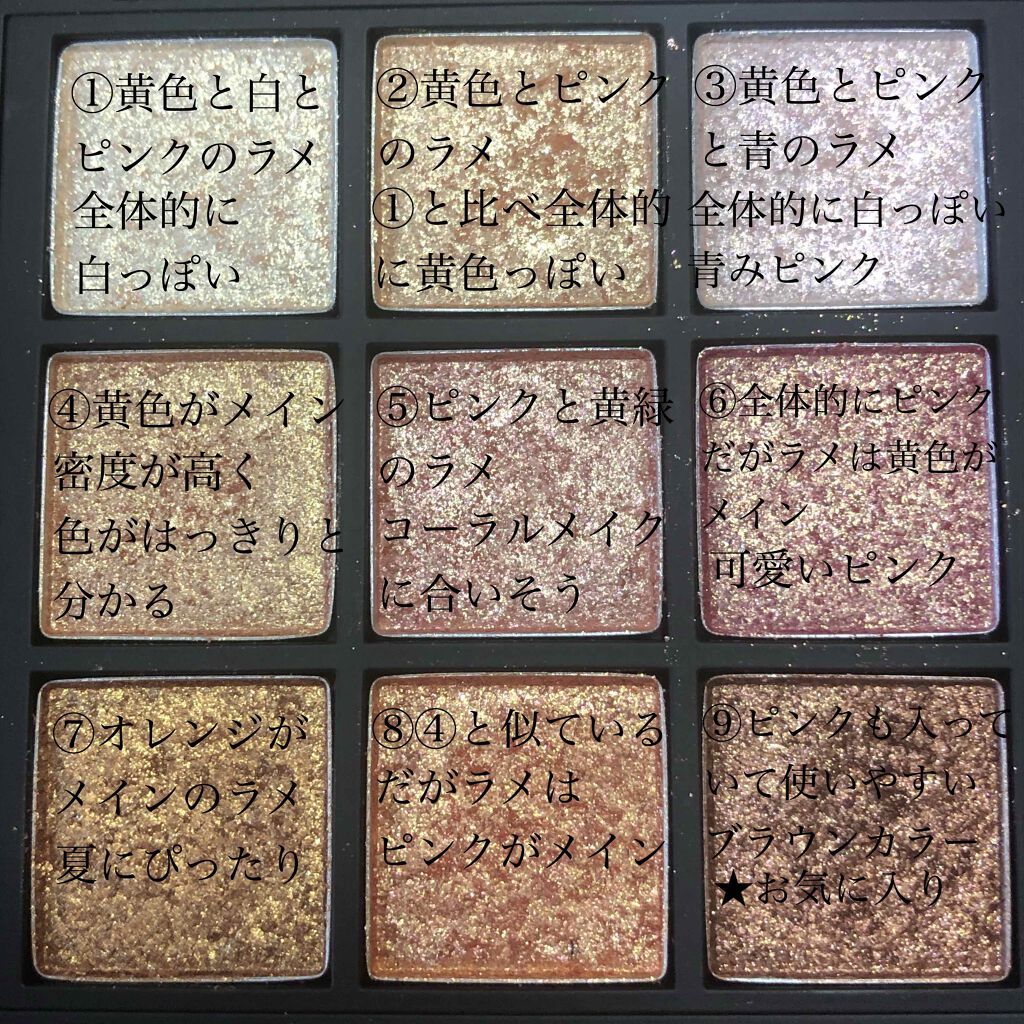 ①黄色と白と
ピンクのラメ
全体的に
白っぽい
②黄色とピンク
のラメ
①と比べ全体的
に黄色っぽい
③黄色とピンク
と青のラメ
全体的に白っぽい
青みピンク
④黄色がメイン
密度が高く
色がはっきりと
分かる
⑤ピンクと黄緑
のラメ
コーラルメイク
に合いそう
⑥全体的にピンク
だがラメは黄色が
メイン
可愛いピンク
⑦オレンジが
メインのラメ
夏にぴったり
⑧④と似ている
だがラメは
ピンクがメイン
⑨ピンクも入って
いて使いやすい
ブラウンカラー
★お気に入り